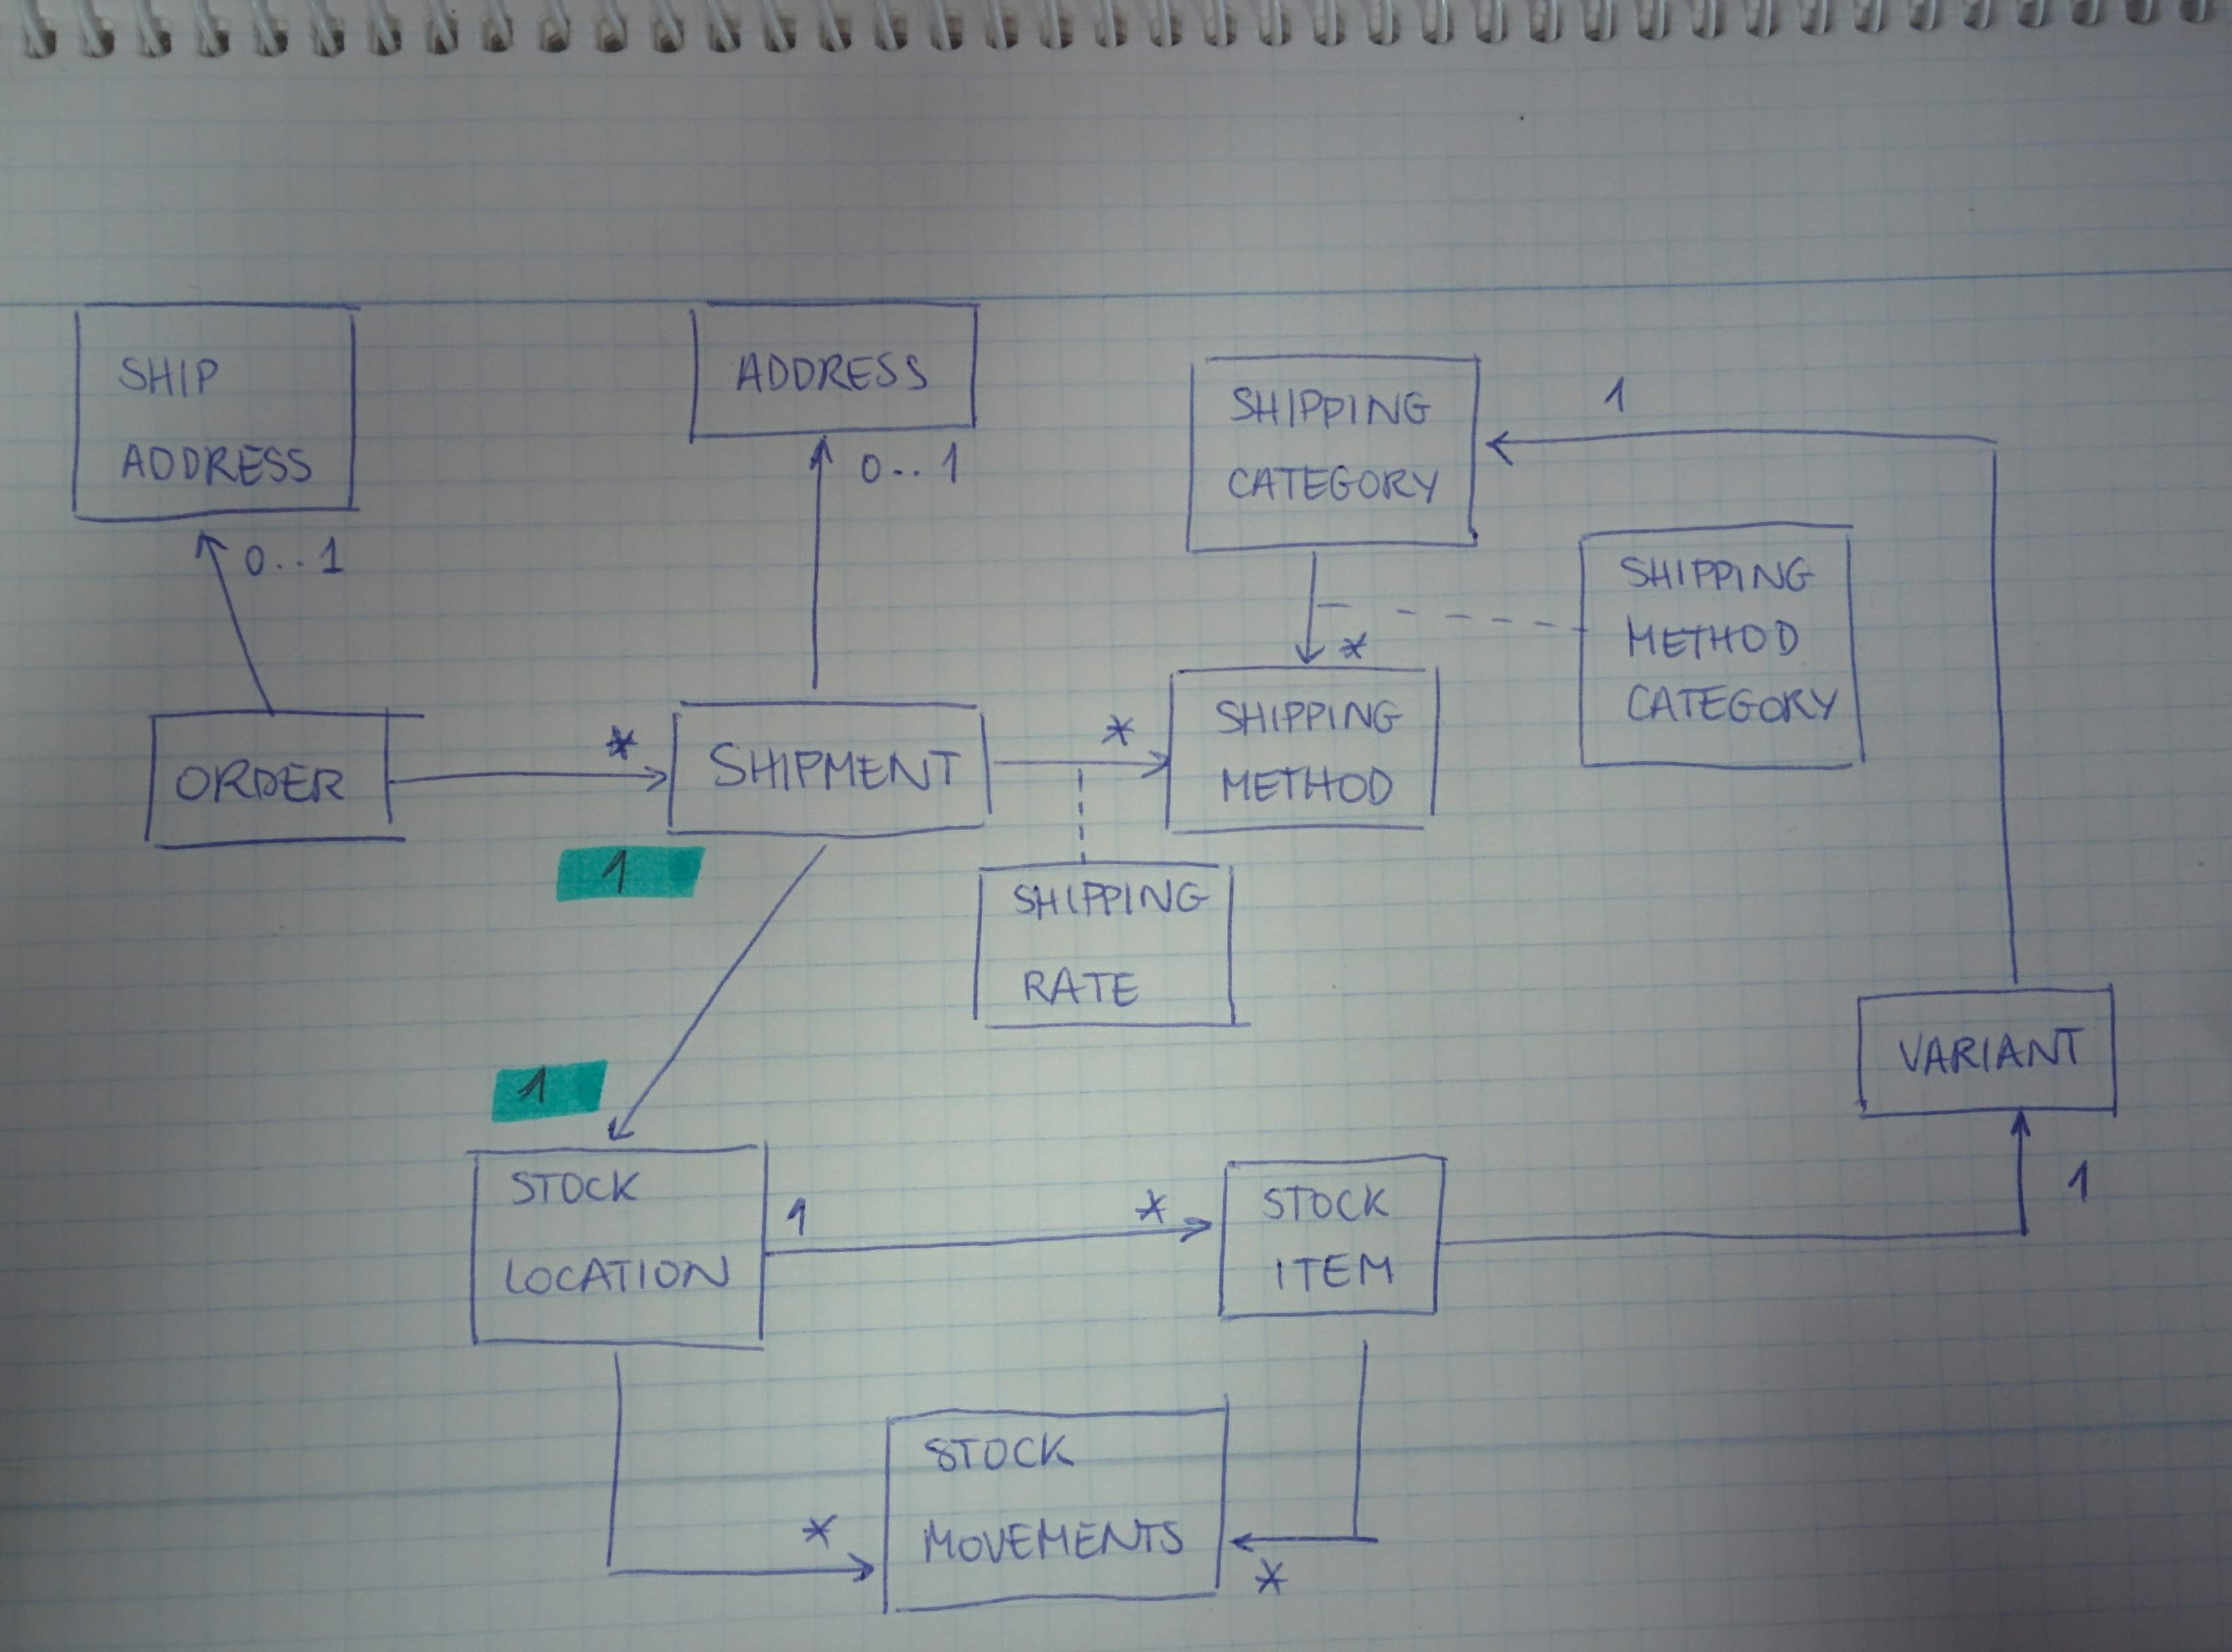 SHIP
ADDRESS
0..1
ADDRESS
0..1
SHIPPING
CATEGORY
1
SHIPPING
METHOD
CATEGORY
*
ORDER
*
SHIPMENT
*
SHIPPING
METHOD
1
SHIPPING
RATE
1
VARIANT
1
STOCK
LOCATION
1
*
STOCK
ITEM
*
STOCK
MOVEMENTS
*